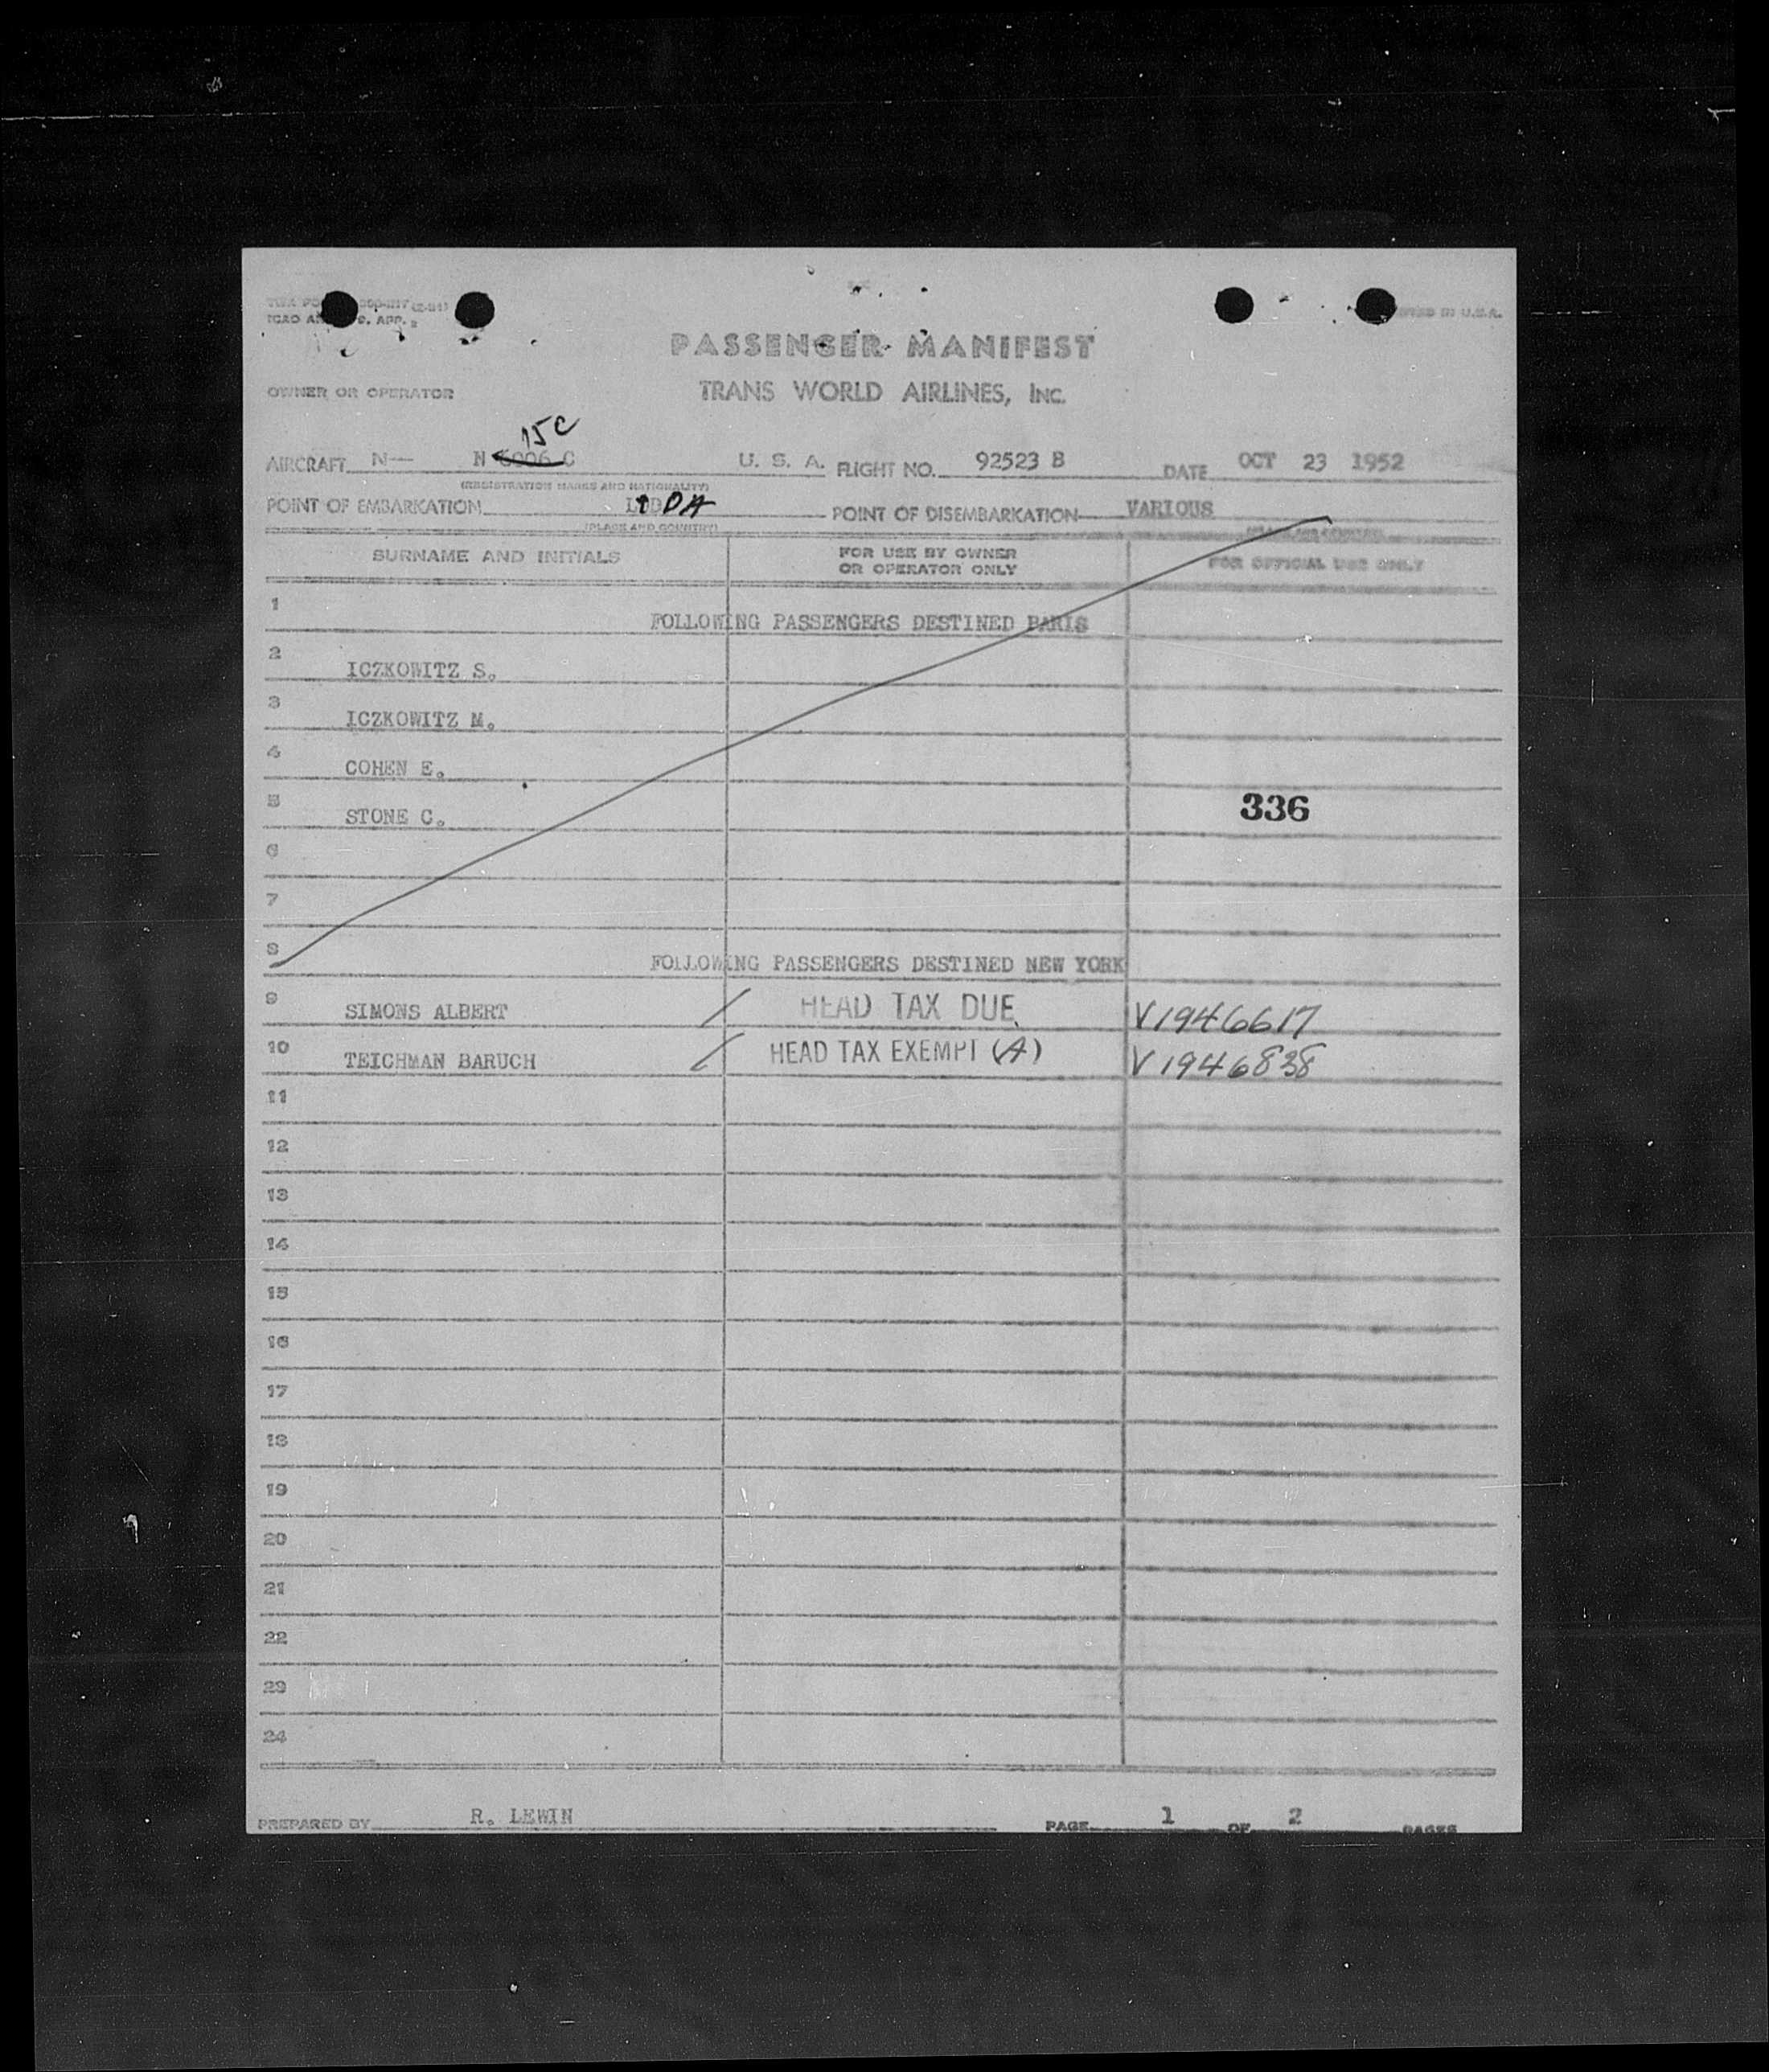 ICAO AN 9. APP. 2
PRINTED IN U.S.A.
PASSENGER MANIFEST
OWNER OR OPERATOR TRANS WORLD AIRLINES, INC.
15C
AIRCRAFT N— N 6006 C U. S. A. FLIGHT NO. 92523 B DATE OCT 23 1952
(REGISTRATION MARKS AND NATIONALITY)
POINT OF EMBARKATION LYDDA POINT OF DISEMBARKATION VARIOUS
(PLACE AND COUNTRY)
SURNAME AND INITIALS FOR USE BY OWNER OR OPERATOR ONLY FOR OFFICIAL USE ONLY
1 FOLLOWING PASSENGERS DESTINED PARIS
2 ICZKOWITZ S.
3 ICZKOWITZ M.
4 COHEN E.
5 STONE C. 336
6
7
8 FOLLOWING PASSENGERS DESTINED NEW YORK
9 SIMONS ALBERT / HEAD TAX DUE V1946617
10 TEICHMAN BARUCH / HEAD TAX EXEMPT (A) V1946838
11
12
13
14
15
16
17
18
19
20
21
22
23
24
PREPARED BY R. LEWIN PAGE 1 OF 2 PAGES